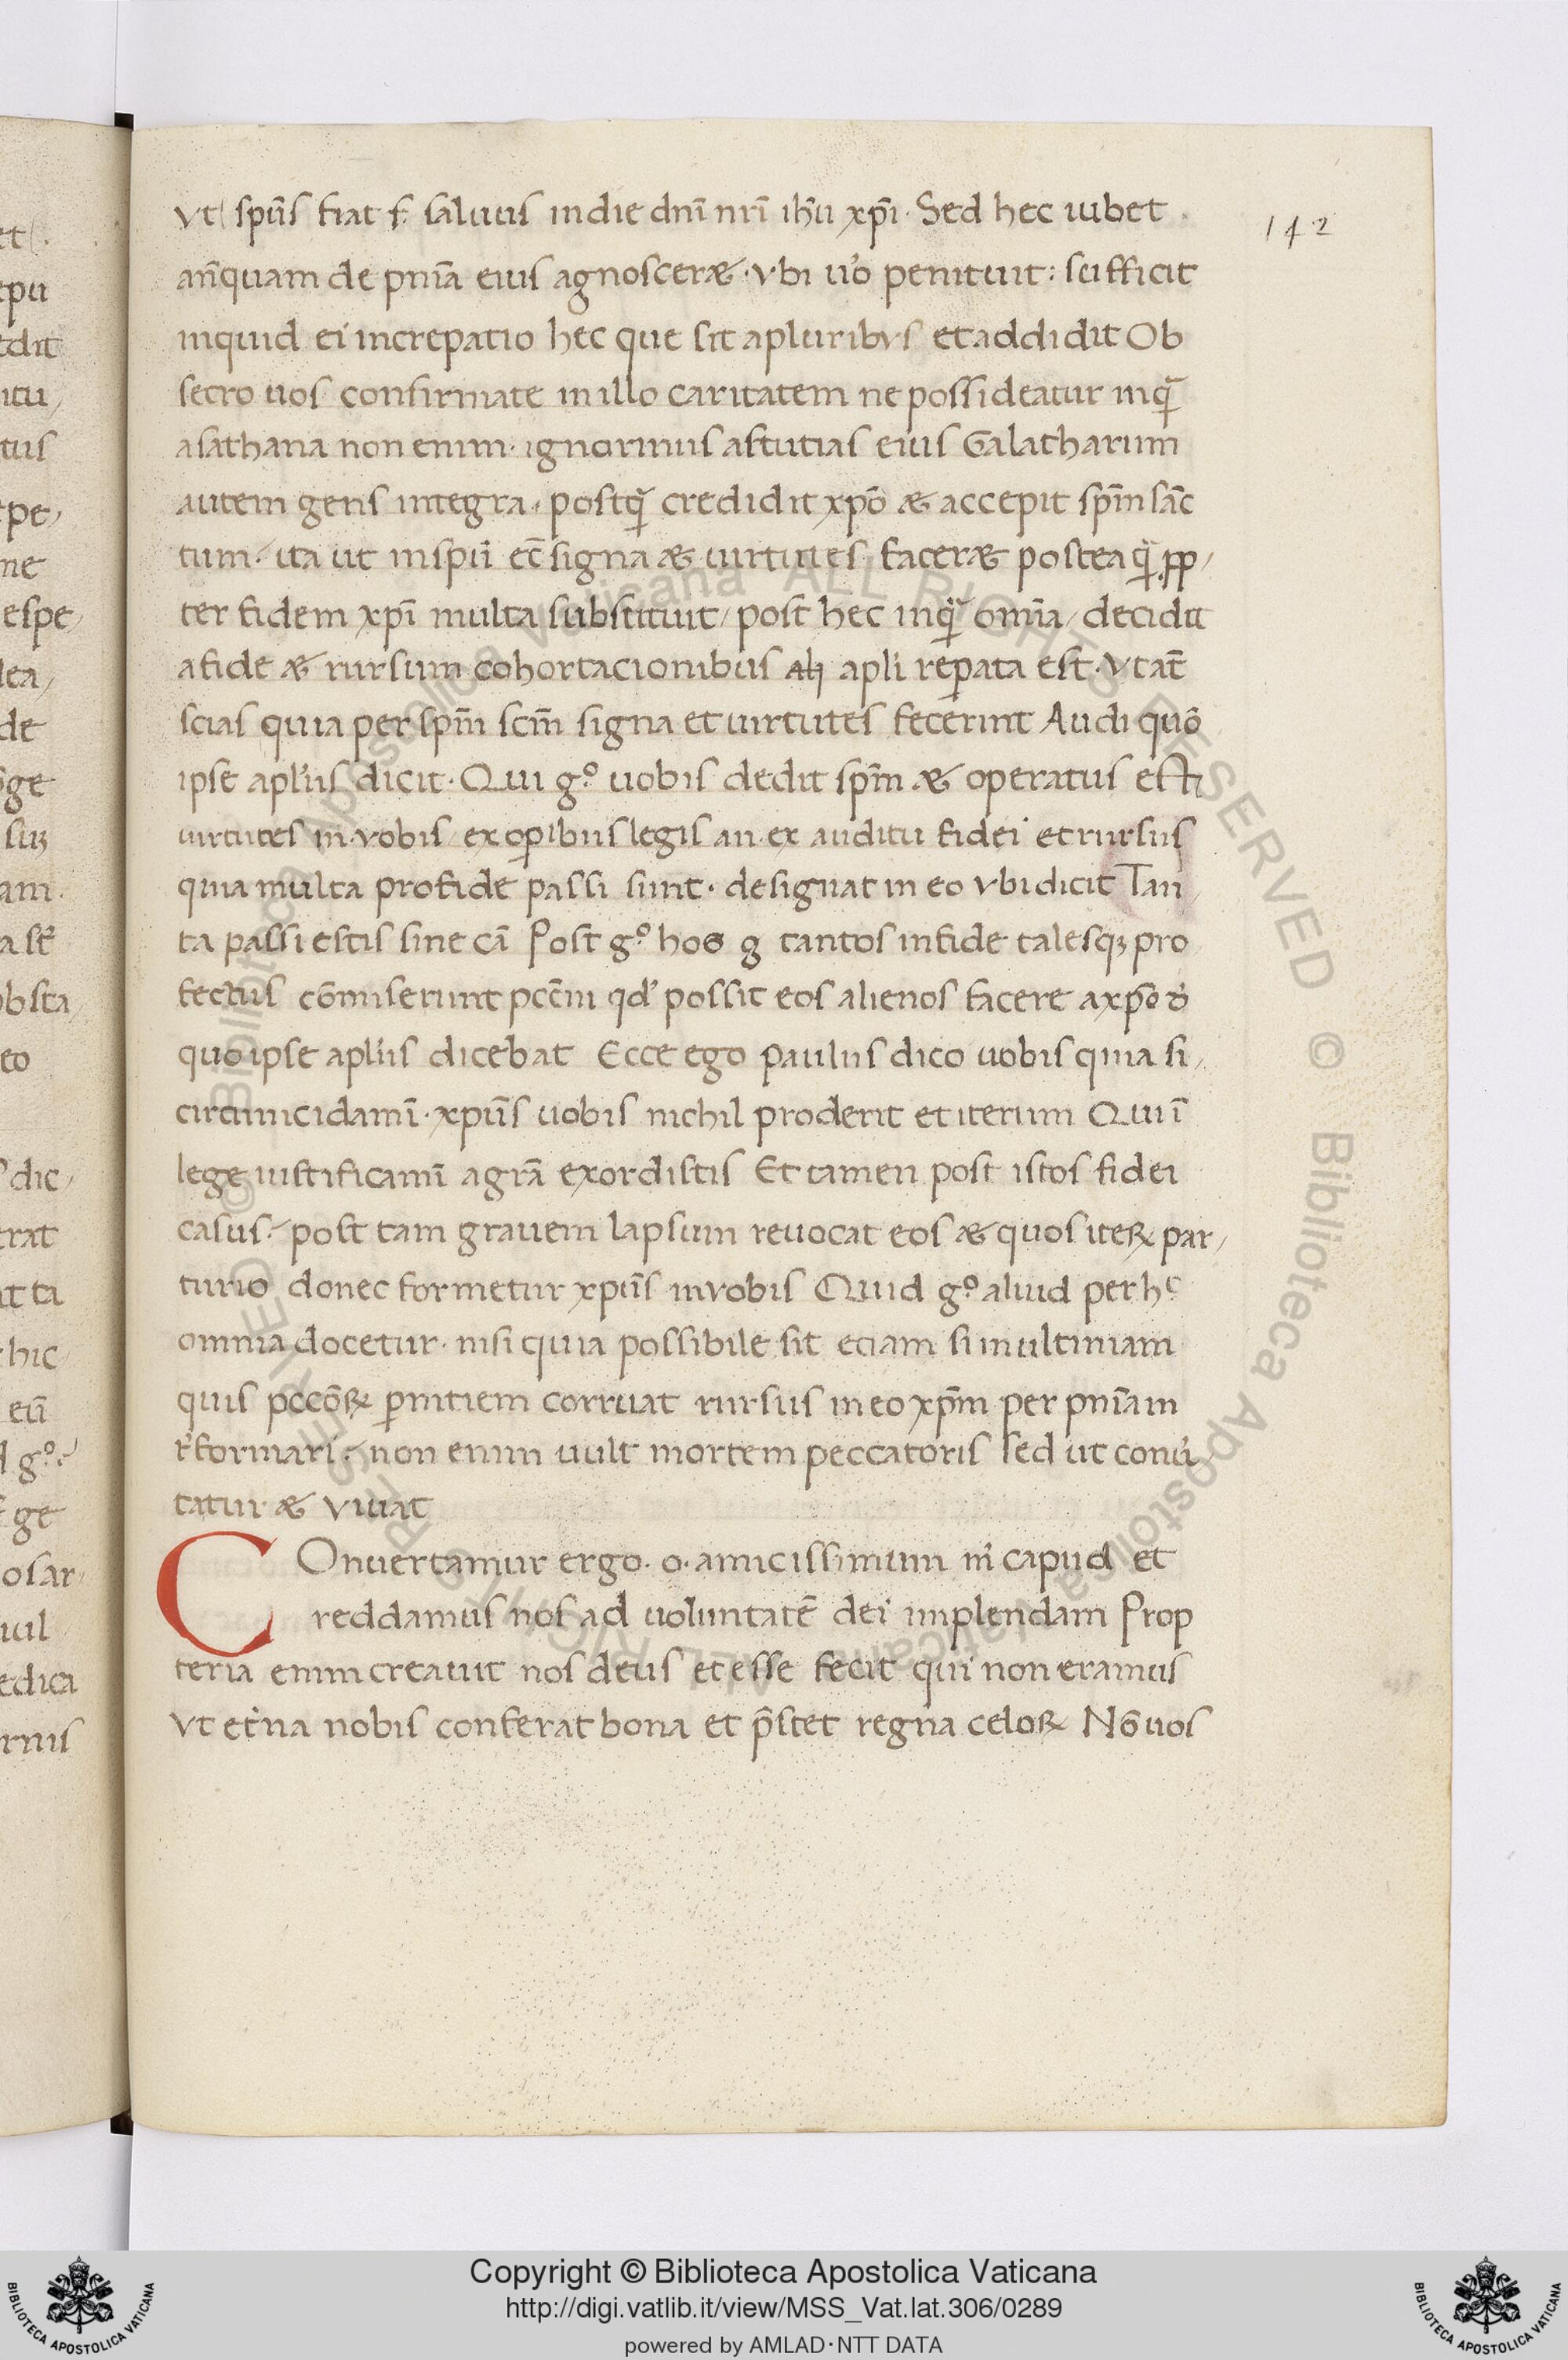 142
vt spūs fiat f saluus in die dnī nrī ihū xpī · Sed hec iubet
an̄quam de pnīa eius agnosceræ · vbi uo penituit : sufficit
inquid ei increpatio hec que sit a pluribvs et addidit Ob
secro uos confirmate in illo caritatem ne possideatur inq̄
a sathana non enim · ignormus astutias eius Galatharum
autem gens integra · postq̄ credidit xpō æ accepit spm̄ sāc
tum · ita ut in spū ec̄ signa æ uirtutes faceræ postea q̄ ꝓp/
ter fidem xpī multa substituit / post hec inq̄ omīa / decidit
a fide æ rursum cohortacionibus apli reꝑata est · vt at̄
scias quia per spm̄ scm̄ signa et uirtutes fecerint Audi quō
ipse aplus dicit · Qui gº uobis dedit spm̄ æ operatus est
uirtutes in · vobis / ex oꝑibus legis an · ex auditu fidei et rursus
quia multa pro fide passi sunt · designat in eo vbi dicit Tan
ta passi estis sine cā Post gº hos g tantos in fide talesqꝫ pro
fectus cōmiserunt pccm̄ qd possit eos alienos facere a xpō
quo ipse aplus dicebat Ecce ego paulus dico uobis quia si /
circumcidamī · xpūs uobis nichil proderit et iterum Qui ī
lege iustificamī a grā exordistis Et tamen post istos fidei
casus · post tam grauem lapsum reuocat eos æ quos iteꝝ par /
turio donec formetur xpūs in vobis Quid gº aliud per hᶜ
omnia docetur · nisi quia possibile sit eciam si in ultimam
quis pccōꝝ ꝑnitiem corruat rursus in eo xpm̄ per pnīam
rformari · non enim uult mortem peccatoris sed ut conu
tatur æ viuat
COnuertamur ergo · o · amicissimum m capud et
reddamus nos ad uoluntatē dei implendam Prop
teria enim creauit nos deus et esse fecit qui non eramus
vt etna nobis conferat bona et p̄stet regna celoꝝ Nō uos
et
epu
edit
itu /
tus
pe /
ne
espe /
lea /
de
ge
suꝫ
am ·
obsta /
eo
dic /
trat
hic
eū
gº
ge
osar
uul
edica
rnis
Copyright © Biblioteca Apostolica Vaticana
http://digi.vatlib.it/view/MSS_Vat.lat.306/0289
powered by AMLAD·NTT DATA
BIBLIOTECA APOSTOLICA VATICANA
BIBLIOTECA APOSTOLICA VATICANA